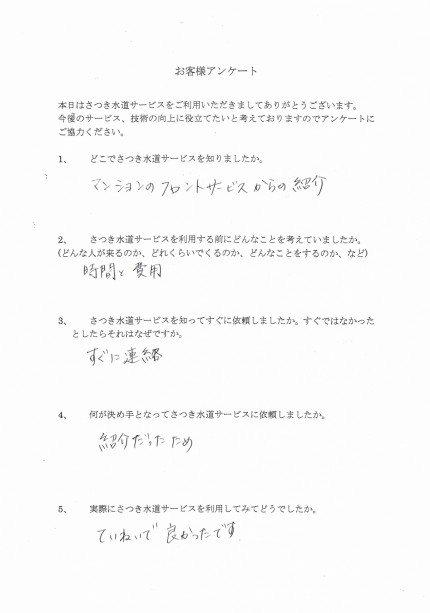 お客様アンケート
本日はさつき水道サービスをご利用いただきましてありがとうございます。
今後のサービス、技術の向上に役立てたいと考えておりますのでアンケートに
ご協力ください。
1、 どこでさつき水道サービスを知りましたか。
マンションのフロントサービスからの紹介
2、 さつき水道サービスを利用する前にどんなことを考えていましたか。
(どんな人が来るのか、どれくらいでくるのか、どんなことをするのか、など)
時間と費用
3、 さつき水道サービスを知ってすぐに依頼しましたか。すぐではなかった
としたらそれはなぜですか。
すぐに連絡
4、 何が決め手となってさつき水道サービスに依頼しましたか。
紹介だったため
5、 実際にさつき水道サービスを利用してみてどうでしたか。
ていねいで良かったです